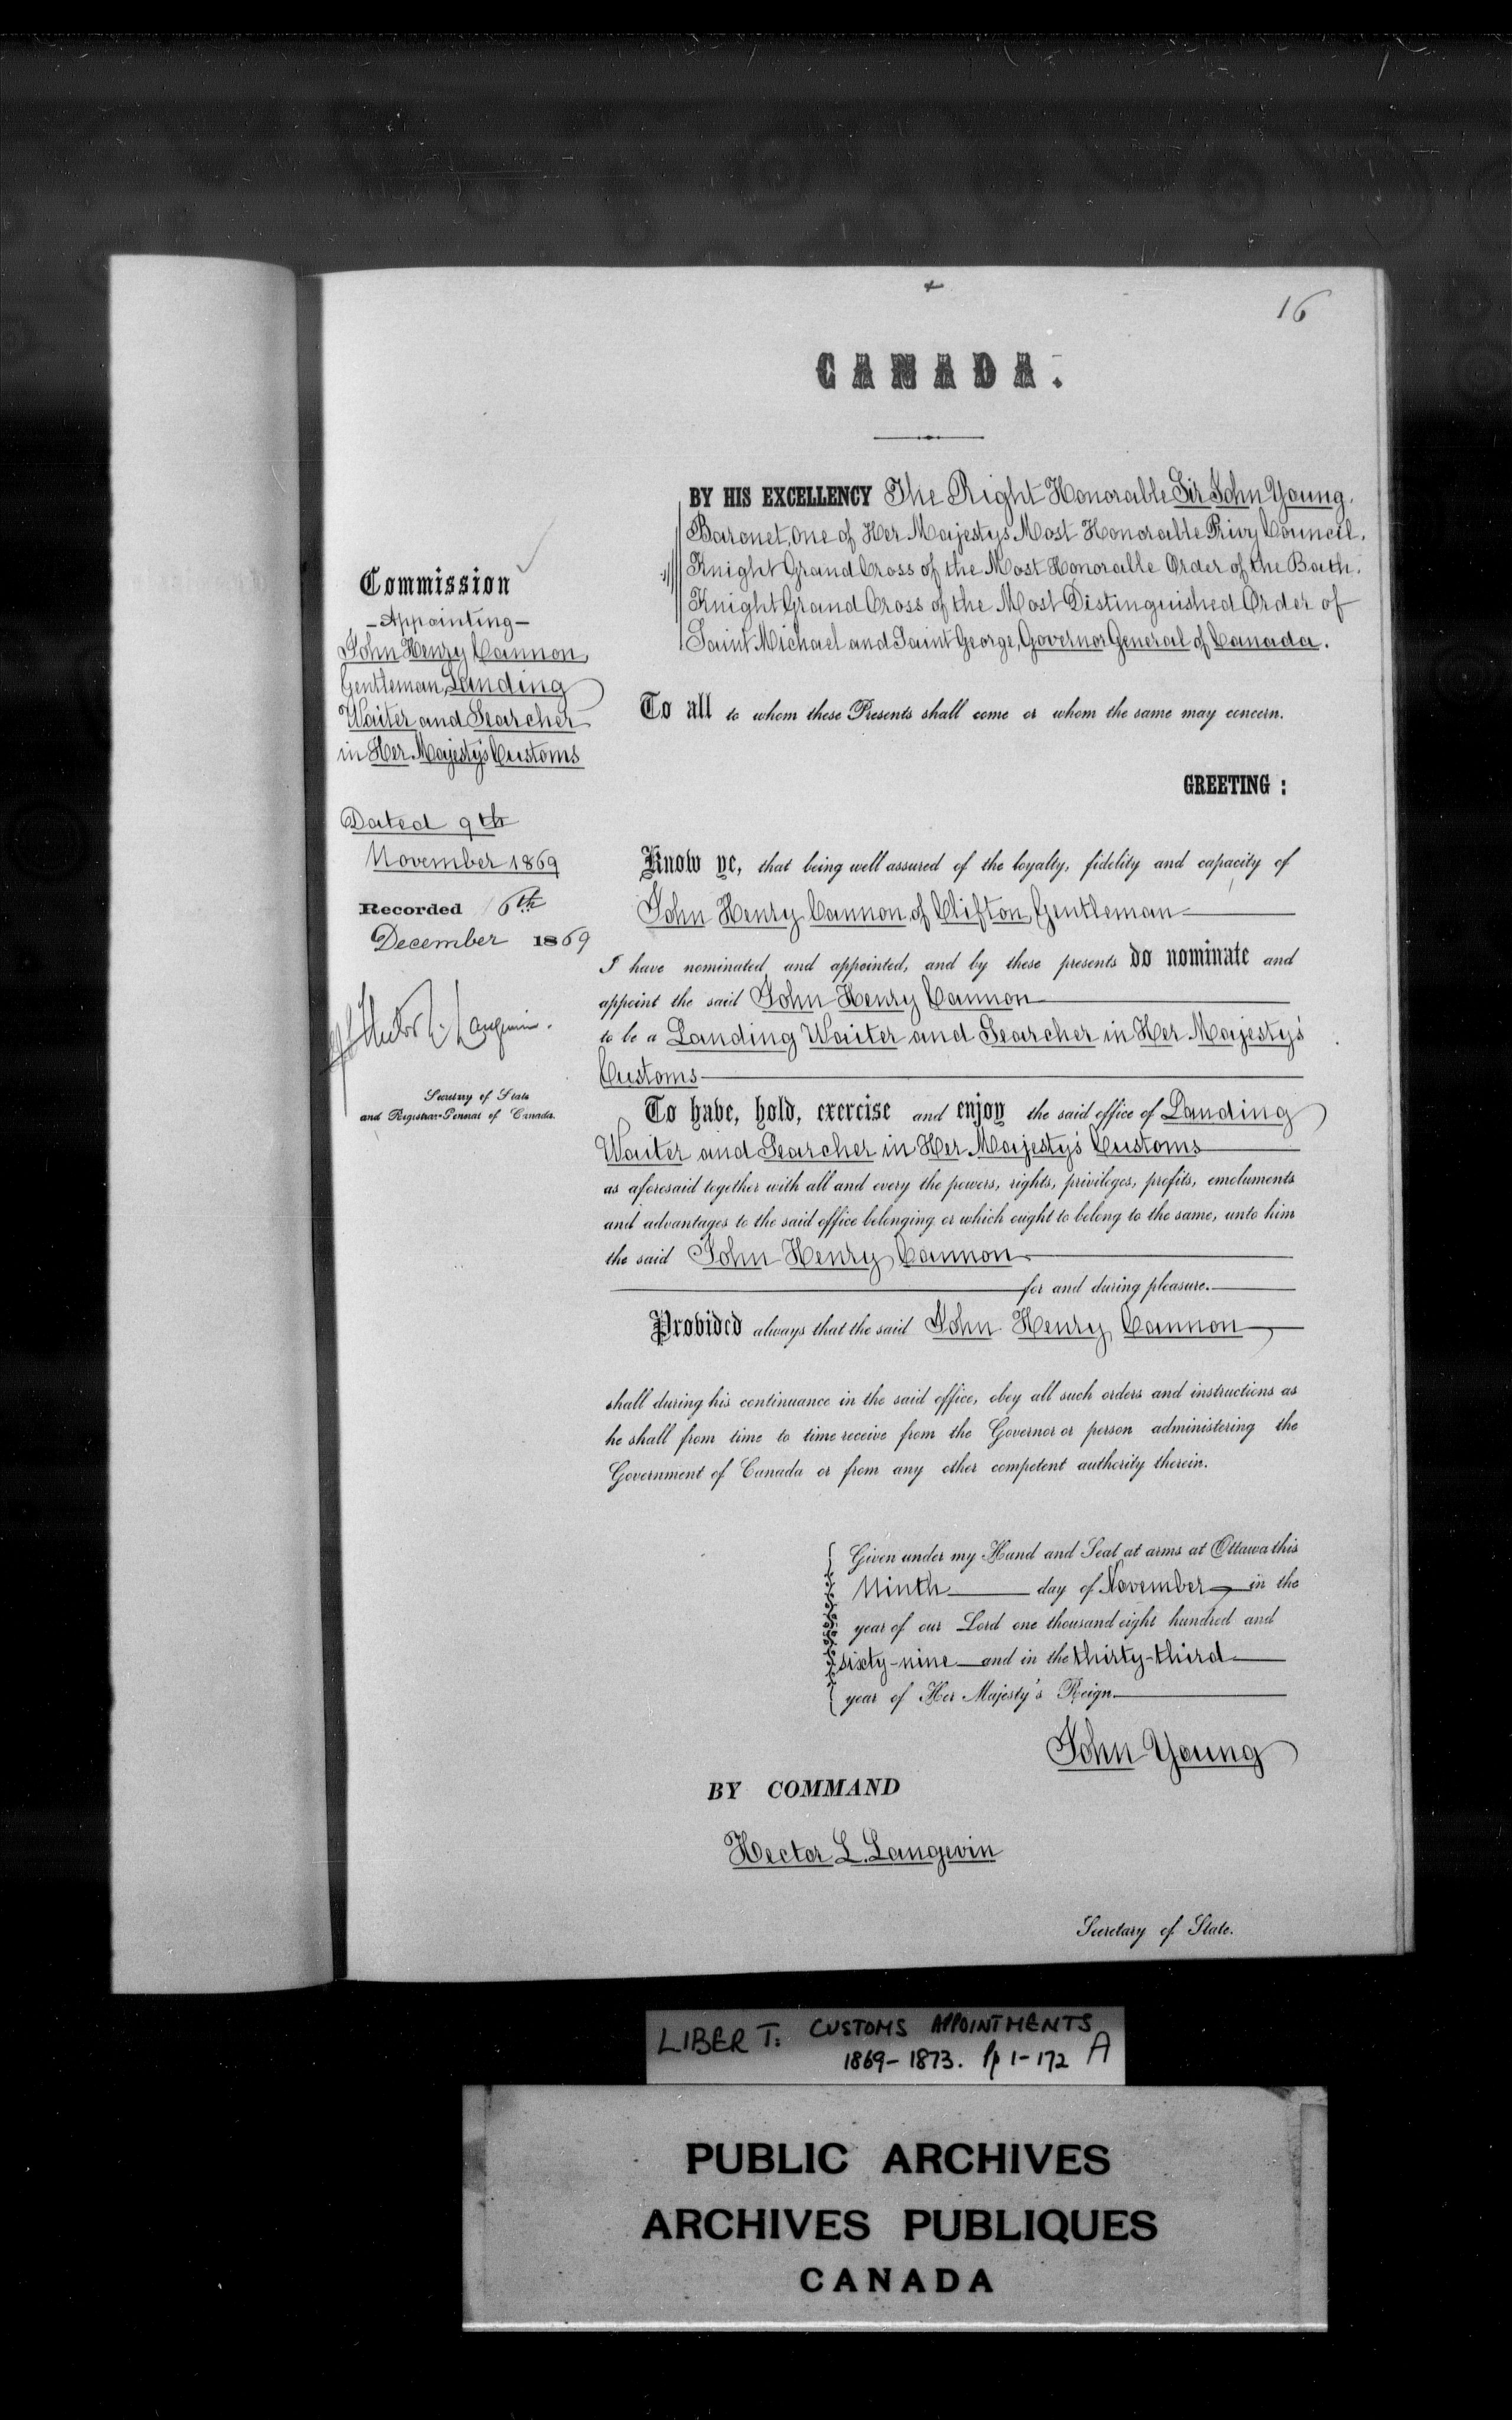 16
CANADA.
BY HIS EXCELLENCY The Right Honorable Sir John Young.
Baronet, one of Her Majestys Most Honorable Privy Council.
Knight Grand Cross of the Most Honorable Order of the Bath.
Knight Grand Cross of the Most Distinguished Order of
Saint Michael and Saint George, Governor General of Canada.
Commission
- Appointing -
John Henry Cannon,
Gentleman, Landing
Waiter and Searcher
in Her Majesty's Customs
Dated 9th
November 1869
Recorded 16th
December 1869
Hector L. Langevin.
Secretary of State
and Registrar-General of Canada.
To all to whom these Presents shall come or whom the same may concern.
GREETING :
Know ye, that being well assured of the loyalty, fidelity and capacity of
John Henry Cannon of Clifton, Gentleman
I have nominated and appointed, and by these presents do nominate and
appoint the said John Henry Cannon
to be a Landing Waiter and Searcher in Her Majesty's
Customs
To have, hold, exercise and enjoy the said office of Landing
Waiter and Searcher in Her Majesty's Customs
as aforesaid together with all and every the powers, rights, privileges, profits, emoluments
and advantages to the said office belonging or which ought to belong to the same, unto him
the said John Henry Cannon
for and during pleasure.
Provided always that the said John Henry Cannon
shall during his continuance in the said office, obey all such orders and instructions as
he shall from time to time receive from the Governor or person administering the
Government of Canada or from any other competent authority therein.
Given under my Hand and Seal at arms at Ottawa this
Ninth day of November in the
year of our Lord one thousand eight hundred and
sixty-nine and in the thirty-third
year of Her Majesty's Reign.
John Young
BY COMMAND
Hector L. Langevin
Secretary of State.
LIBER T: CUSTOMS APPOINTMENTS
1869-1873. pp 1-172 A
PUBLIC ARCHIVES
ARCHIVES PUBLIQUES
CANADA